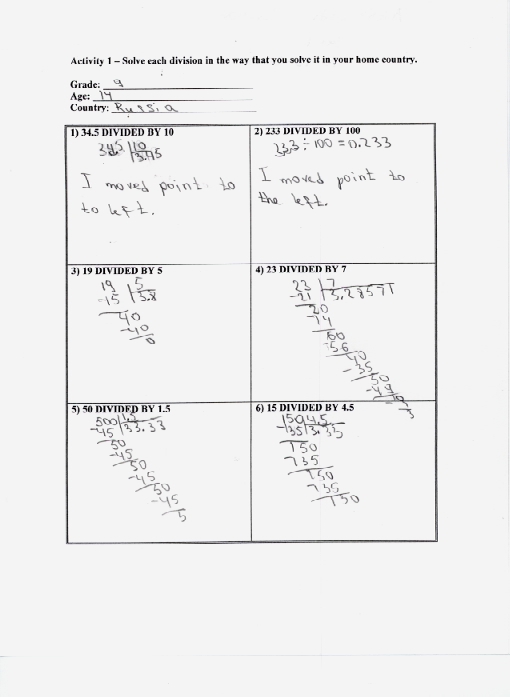 Activity 1 – Solve each division in the way that you solve it in your home country.
Grade: 9
Age: 14
Country: Russia
1) 34.5 DIVIDED BY 10
34.5 10
3.45
I moved point to
to left.
2) 233 DIVIDED BY 100
233 ÷ 100 = 0.233
I moved point to
the left.
3) 19 DIVIDED BY 5
19 5
-15 3.8
40
-40
0
4) 23 DIVIDED BY 7
23 7
-21 3,28571
20
-14
60
-56
40
-35
50
-49
10
-7
3
5) 50 DIVIDED BY 1.5
500 1.5
-45 33.33
50
-45
50
-45
50
-45
5
6) 15 DIVIDED BY 4.5
150 4.5
-135 3.33
150
135
150
135
150